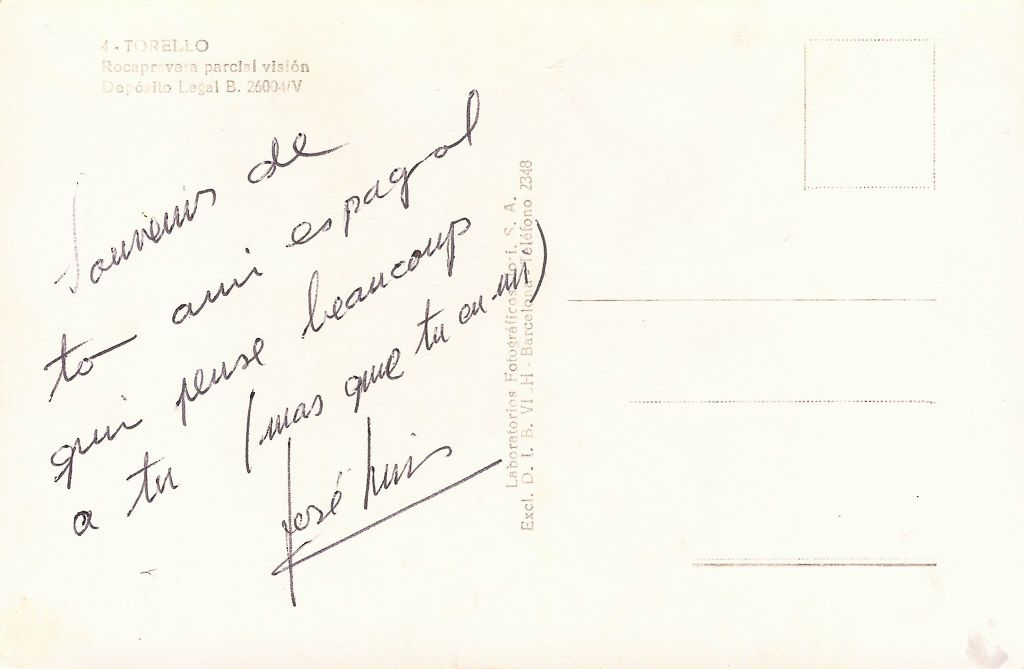 4 - TORELLO
Rocaprevera parcial visión
Depósito Legal B. 26004/V
Souvenirs de
to ami espagnol
qui pense beaucoup
a tu (mas que tu en mi)
José Luis
Laboratorios Fotográficos S. A.
Excl. D. I. B. VI H - Barcelona Teléfono 2348